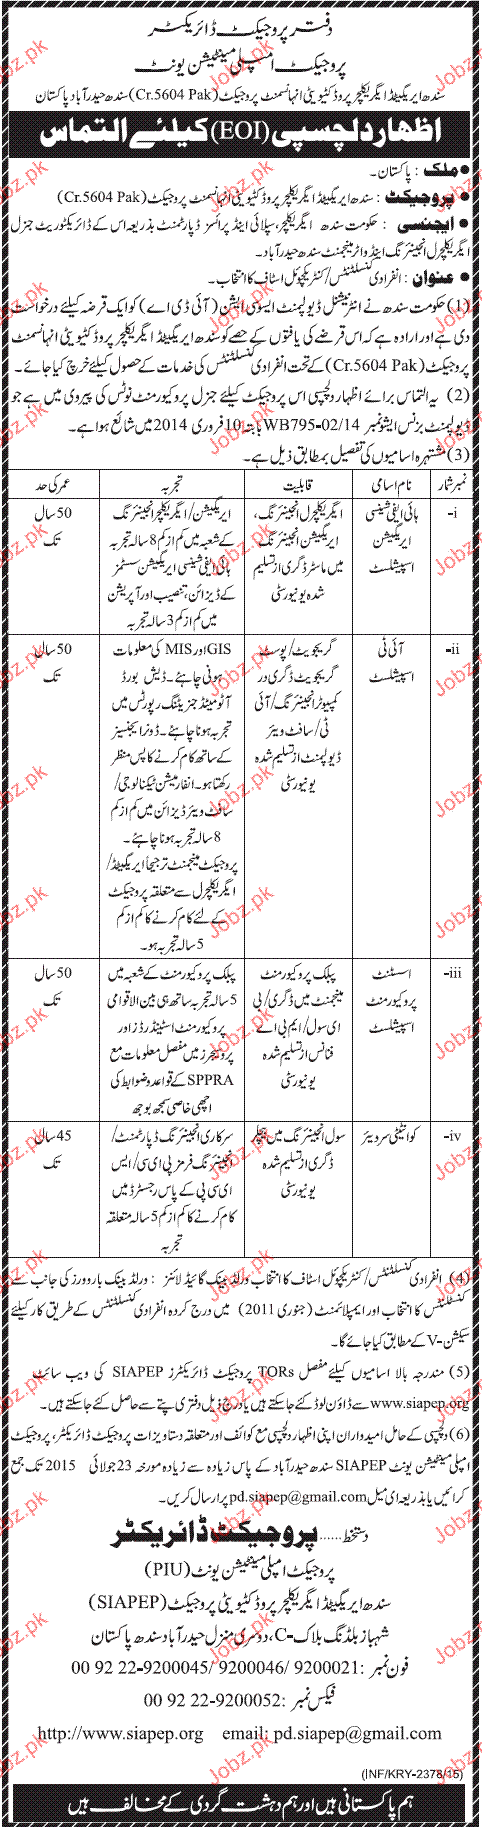 دفتر پروجیکٹ ڈائریکٹر
پروجیکٹ امپلی مینٹیشن یونٹ
سندھ ایریگیٹڈ ایگریکلچر پروڈکٹیویٹی انہانسمنٹ پروجیکٹ (Cr.5604 Pak) سندھ حیدرآباد پاکستان
اظہار دلچسپی (EOI) کیلئے التماس
● ملک : پاکستان۔
● پروجیکٹ : سندھ ایریگیٹڈ ایگریکلچر پروڈکٹیویٹی انہانسمنٹ پروجیکٹ (Cr.5604 Pak)
● ایجنسی : حکومت سندھ ایگریکلچر، سپلائی اینڈ پرائسز ڈپارٹمنٹ بذریعہ اس کے ڈائریکٹوریٹ جنرل
ایگریکلچرل انجینئرنگ اینڈ واٹر مینجمنٹ سندھ حیدرآباد۔
● عنوان : انفرادی کنسلٹنٹس/کنٹریکچوئل اسٹاف کا انتخاب۔
(1) حکومت سندھ نے انٹرنیشنل ڈیولپمنٹ ایسوسی ایشن (آئی ڈی اے) کو ایک قرضہ کیلئے درخواست
دی ہے اور ارادہ ہے کہ اس قرضے کی یافتوں کے حصے کو سندھ ایریگیٹڈ ایگریکلچر پروڈکٹیویٹی انہانسمنٹ
پروجیکٹ (Cr.5604 Pak) کے تحت انفرادی کنسلٹنٹس کی خدمات کے حصول کیلئے خرچ کیا جائے۔
(2) یہ التماس برائے اظہار دلچسپی اس پروجیکٹ کیلئے جنرل پروکیورمنٹ نوٹس کی پیروی میں ہے جو
ڈیولپمنٹ بزنس ایشو نمبر WB795-02/14 بابتہ 10 فروری 2014 میں شائع ہوا ہے۔
(3) مشتہرہ اسامیوں کی تفصیل بمطابق ذیل ہے۔
نمبر شمار نام اسامی قابلیت تجربہ عمر کی حد
i- ہائی ایفی شینسی ایگریکلچرل انجینئرنگ، ایریگیشن/ایگریکلچر انجینئرنگ 50 سال
ایریگیشن ایریگیشن انجینئرنگ کے شعبہ میں کم از کم 8 سالہ تجربہ تک
اسپیشلسٹ میں ماسٹر ڈگری از تسلیم ہائی ایفی شینسی ایریگیشن سسٹمز
شدہ یونیورسٹی کے ڈیزائن، تنصیب اور آپریشن
میں کم از کم 3 سالہ تجربہ
ii- آئی ٹی گریجویٹ/پوسٹ GIS اور MIS کی معلومات 50 سال
اسپیشلسٹ گریجویٹ ڈگری در ہونی چاہئے۔ ڈیش بورڈ تک
کمپیوٹر انجینئرنگ/آئی آٹومیٹڈ جنریٹنگ رپورٹس میں
ٹی/سافٹ ویئر تجربہ ہونا چاہئے۔ ڈونر ایجنسیز
ڈیولپمنٹ از تسلیم شدہ کے ساتھ کام کرنے کا پس منظر
یونیورسٹی رکھتا ہو۔ انفارمیشن ٹیکنالوجی/
سافٹ ویئر ڈیزائن میں کم از کم
8 سالہ تجربہ ہونا چاہئے۔
پروجیکٹ مینجمنٹ ترجیحاً ایریگیٹڈ/
ایگریکلچرل سے متعلقہ پروجیکٹ
کے لئے کام کرنے کا کم از کم
5 سالہ تجربہ ہو۔
iii- اسسٹنٹ پبلک پروکیورمنٹ پبلک پروکیورمنٹ کے شعبہ میں 50 سال
پروکیورمنٹ مینجمنٹ میں ڈگری/بی 5 سالہ تجربہ ساتھ ہی بین الاقوامی تک
اسپیشلسٹ ای سول/ایم بی اے پروکیورمنٹ اسٹینڈرڈز اور
فنانس از تسلیم شدہ پروسیجرز میں مفصل معلومات مع
یونیورسٹی SPPRA کے قواعد و ضوابط کی
اچھی خاصی سمجھ بوجھ
iv- کوانٹیٹی سرویئر سول انجینئرنگ میں بیچلر سرکاری انجینئرنگ ڈپارٹمنٹ/ 45 سال
ڈگری از تسلیم شدہ انجینئرنگ فرمز پی ای سی/ایس تک
یونیورسٹی ای سی پی کے پاس رجسٹرڈ میں
کام کرنے کا کم از کم 5 سالہ متعلقہ
تجربہ
(4) انفرادی کنسلٹنٹس/کنٹریکچوئل اسٹاف کا انتخاب ورلڈ بینک گائیڈ لائنز : ورلڈ بینک بارورز کی جانب سے
کنسلٹنٹس کا انتخاب اور ایمپلائمنٹ (جنوری 2011) میں درج کردہ انفرادی کنسلٹنٹس کے طریق کار کیلئے
سیکشن-V کے مطابق کیا جائے گا۔
(5) مندرجہ بالا اسامیوں کیلئے مفصل TORs پروجیکٹ ڈائریکٹرز SIAPEP کی ویب سائٹ
www.siapep.org سے ڈاؤن لوڈ کئے جا سکتے ہیں یا درج ذیل دفتری پتے سے حاصل کئے جا سکتے ہیں۔
(6) دلچسپی کے حامل امیدواران اپنی اظہار دلچسپی مع کوائف اور متعلقہ دستاویزات پروجیکٹ ڈائریکٹر، پروجیکٹ
امپلی مینٹیشن یونٹ SIAPEP سندھ حیدرآباد کے پاس زیادہ سے زیادہ مورخہ 23 جولائی 2015 تک جمع
کرائیں یا بذریعہ ای میل pd.siapep@gmail.com پر ارسال کریں۔
دستخط...... پروجیکٹ ڈائریکٹر
پروجیکٹ امپلی مینٹیشن یونٹ (PIU)
سندھ ایریگیٹڈ ایگریکلچر پروڈکٹیویٹی پروجیکٹ (SIAPEP)
شہباز بلڈنگ بلاک-C، دوسری منزل حیدرآباد سندھ پاکستان
فون نمبر : 00 92 22-9200045/ 9200046/ 9200021
فیکس نمبر : 00 92 22-9200052
http://www.siapep.org email: pd.siapep@gmail.com
(INF/KRY-2378/15)
ہم پاکستانی ہیں اور ہم دہشت گردی کے مخالف ہیں
Jobz.pk